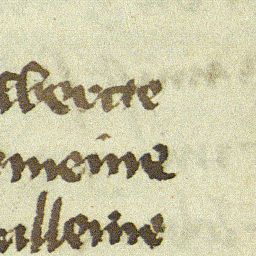 lberte
emeine
alleine